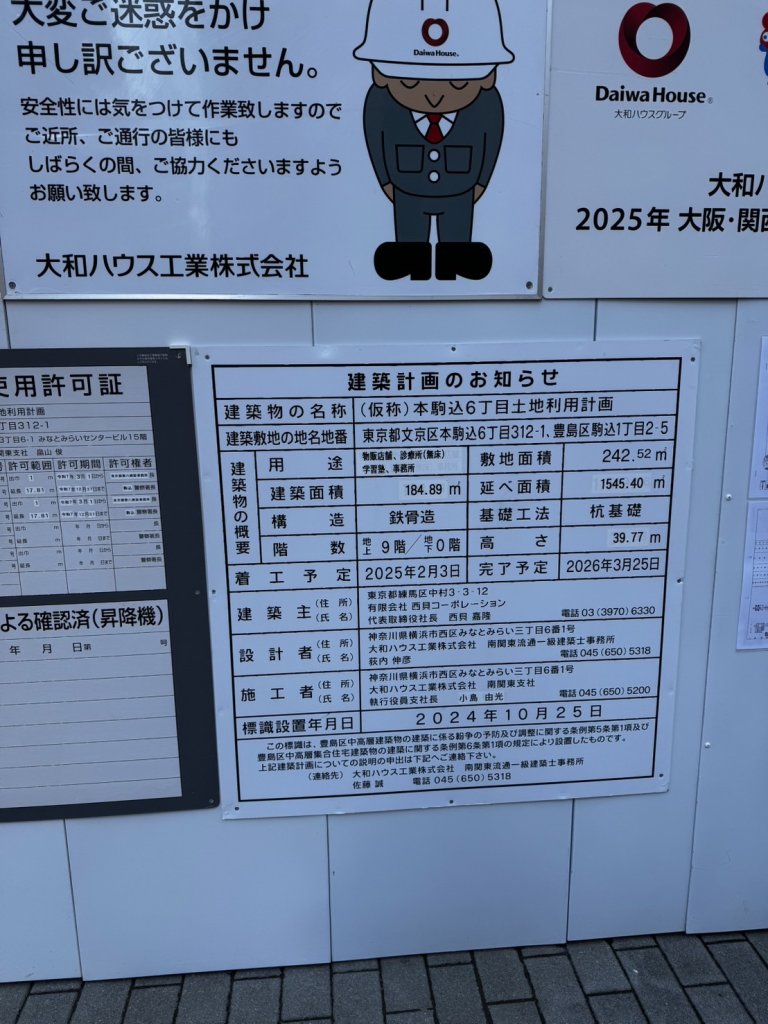 大変ご迷惑をかけ
申し訳ございません。
安全性には気をつけて作業致しますので
ご近所、ご通行の皆様にも
しばらくの間、ご協力くださいますよう
お願い致します。
大和ハウス工業株式会社
Daiwa House®
Daiwa House®
大和ハウスグループ
大和ハ
2025年 大阪・関西
使用許可証
地利用計画
丁目312-1
3丁目6-1 みなとみらいセンタービル15階
関東支社 畠山 俊
許可範囲 許可期間 許可権者
よる確認済(昇降機)
年 月 日第 号
建築計画のお知らせ
建築物の名称 (仮称)本駒込6丁目土地利用計画
建築敷地の地名地番 東京都文京区本駒込6丁目312-1、豊島区駒込1丁目2-5
建築物の概要
用途 物販店舗、診療所(無床) 学習塾、事務所 敷地面積 242.52㎡
建築面積 184.89㎡ 延べ面積 1545.40㎡
構造 鉄骨造 基礎工法 杭基礎
階数 地上9階/地下0階 高さ 39.77m
着工予定 2025年2月3日 完了予定 2026年3月25日
建築主 (住所) (氏名) 東京都練馬区中村3-3-12
有限会社 西貝コーポレーション
代表取締役社長 西貝 嘉隆 電話 03 (3970) 6330
設計者 (住所) (氏名) 神奈川県横浜市西区みなとみらい三丁目6番1号
大和ハウス工業株式会社 南関東流通一級建築士事務所
荻内 伸彦 電話 045 (650) 5318
施工者 (住所) (氏名) 神奈川県横浜市西区みなとみらい三丁目6番1号
大和ハウス工業株式会社 南関東支社
執行役員支社長 小島 由光 電話 045 (650) 5200
標識設置年月日 2024年10月25日
この標識は、豊島区中高層建築物の建築に係る紛争の予防及び調整に関する条例第5条第1項及び
豊島区中高層集合住宅建築物の建築に関する条例第6条第1項の規定により設置したものです。
上記建築計画についての説明の申出は下記へご連絡下さい。
(連絡先) 大和ハウス工業株式会社 南関東流通一級建築士事務所
佐藤 誠 電話 045 (650) 5318